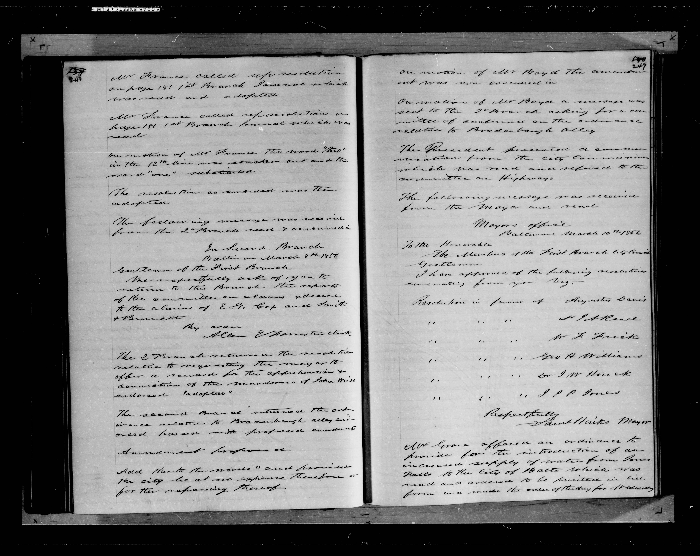 Mr France called up resolution
on page 181 1st Branch Journal which
was read and adopted
Mr France called up resolution on
page 181 1st Branch Journal which was
read
On motion of Mr France the word "that"
in the 12th line was stricken out and the
word "one" substituted
The resolution as amended was then
adopted
The following message was received
from the 2d Branch read &
In Second Branch
March 8th
Gentlemen of the First Branch
We respectfully ask of you to
return to this Branch the report
of the committee on claims relative
to the claims of E. G. Cox and Smith
&
By order
Clerk
The 2d Branch returned the resolution
relative to requesting the mayor to
offer a reward for the apprehension &
conviction of the murderers of John
endorsed "adopted"
The second Branch returned the
relative to Brandenburgh alley
with proposed amend
Amendment
Add to the words "and provided
the city be at no expense therefor or
for the repairing thereof
249
on motion of Mr Boyd the amendm
ent was non concurred in
On motion of Mr Boyd a message was
sent to the 2d Branch asking for a com
mittee of conference on the ordinance
relative to Brandenburgh Alley
The President presented a commu
nication from the City Commissioners
which was read and referred to the
committee on Highways
The following message was received
from the Mayor and read
Mayors office
Baltimore March 10th
To the Honorable
The Members of the First Branch City Council
Gentlemen
I have approved of the following resolutions
emanating from your
Resolution in favor of Augustus Davis
" " " "
" " " W. F. Frick
" " " Geo H Williams
" " " Dr J. W. Houck
" " " J P P Jones
Respectfully
Saml Hinks Mayor
Mr Grove offered an ordinance to
provide for the introduction of an
increased supply of water from Jones
Falls to the City of Balto which was
read and ordered to be printed in bill
form and made the order of the day for Wednesday